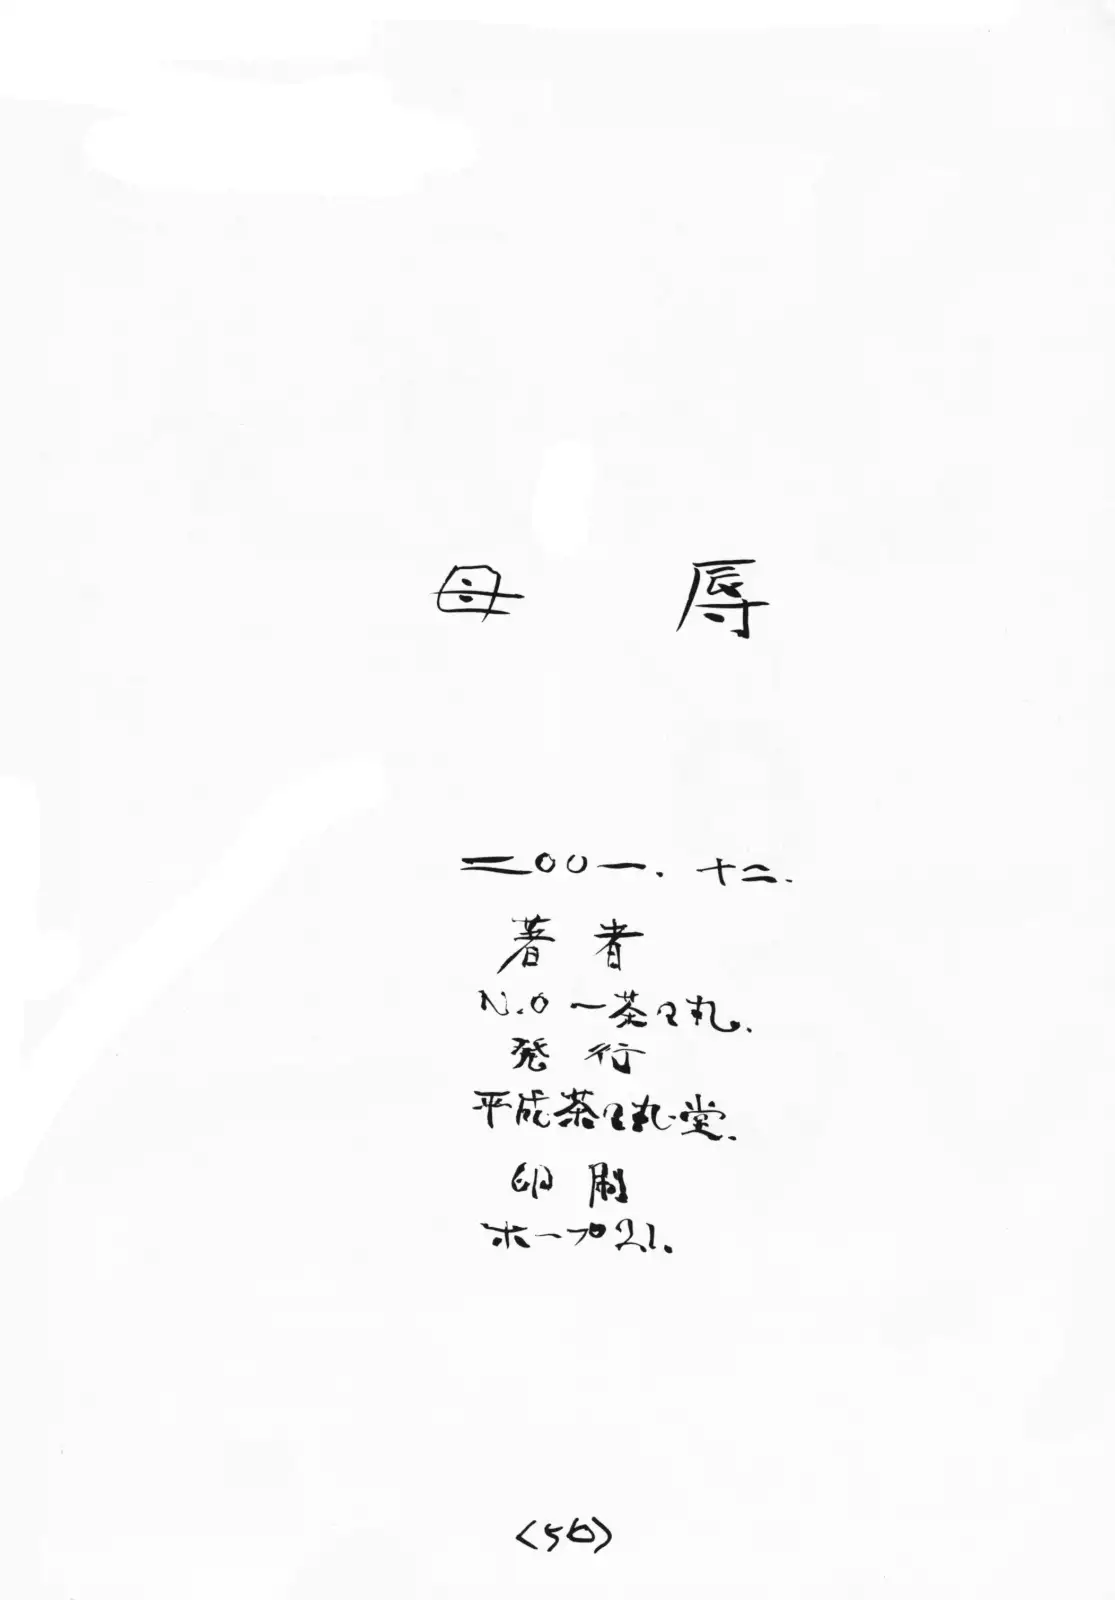 母 辱
二〇〇一. 十二.
著者
N.O 一茶々丸.
発行
平成茶々丸堂.
印刷
ホープ21.
<56>